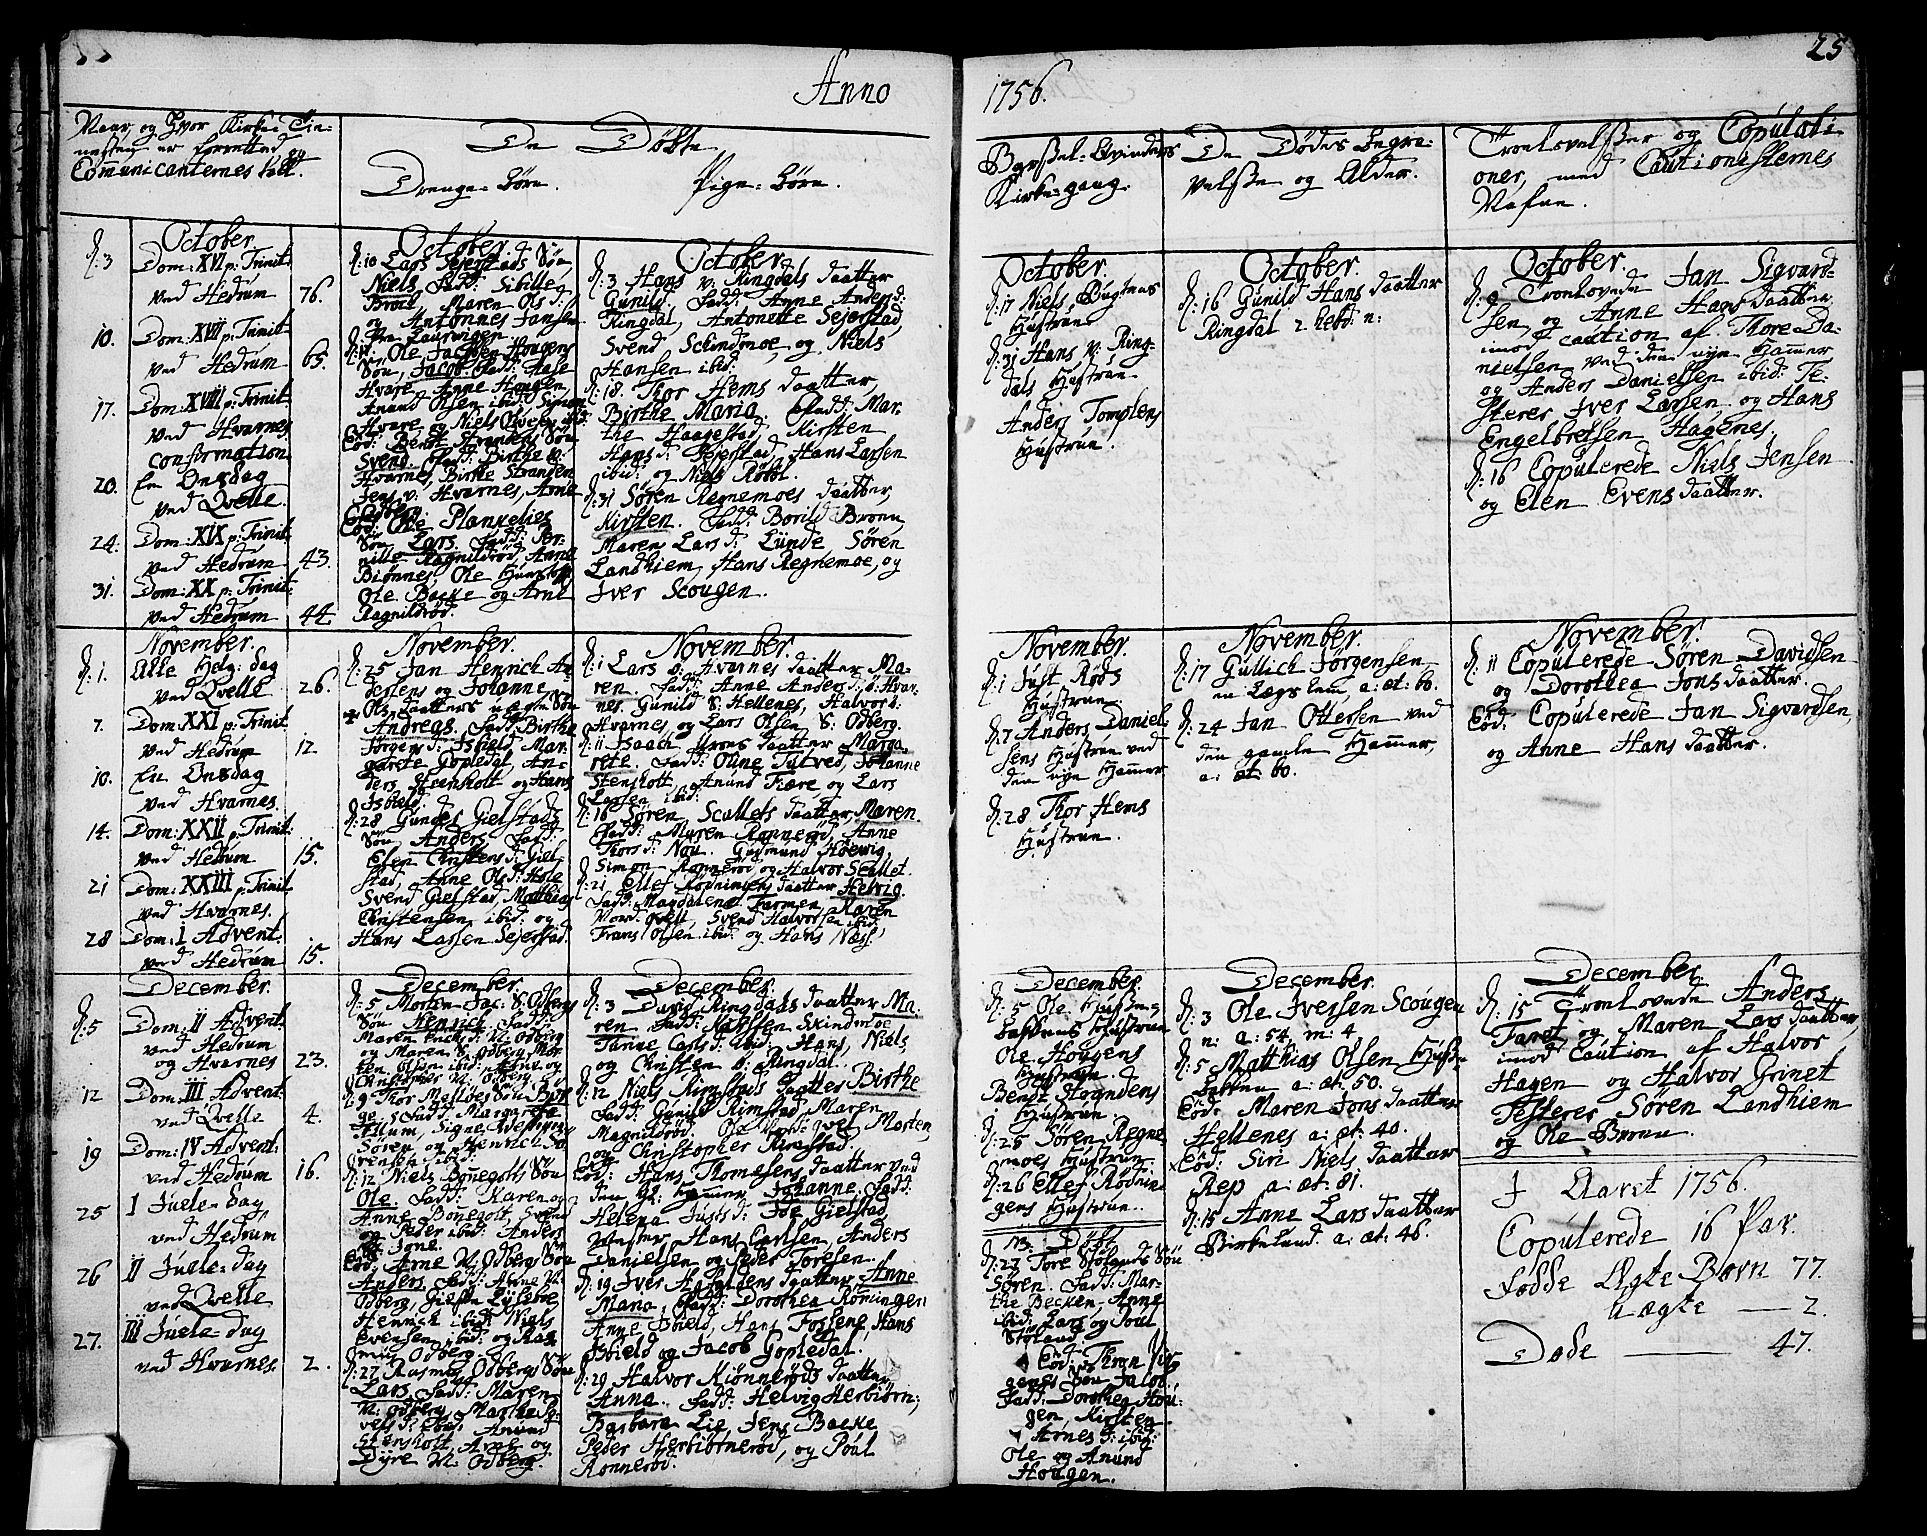 Anno
1756.
25
Naar, og Hvor Kirke Tie-
nesten er forretted og
Communicanternes tall.
De Døbte
Drenge-børn. Pige-børn.
Barsel-Qvinders
Kirkegang.
De Dødes begra-
velsse og Alder.
Trolovelsser og Copulati-
oner, med Cautionisternes
Nafne.
October.
d: 3 Dom: XVI p: Trinit:
ved Hedrum 76.
10. Dom: XVII p: Trinit:
ved Hedrum 65.
17. Dom: XVIII p: Trinit:
ved Hvarnes
confirmation
20. En Onsdag
ved Qvelle.
24. Dom: XIX p: Trinit:
ved Hedrum 43.
31. Dom: XX p: Trinit:
ved Hedrum 44.
October.
d: 10 Lars Sejerstads Søn
Niels. Fadd: Sibille
Maren Ols d:
og Antonnes Jansen
Ole Jacobsen Hougens
Søn, Jacob. Fadd: Aase
Hvare, Anne Hougen,
Anund Olsen ibid:
Hvare og Niels
Eod: Bendt Strandens Søn
Svend. Fadd: Birthe v:
Hvarnes, Birthe Stranden
Jens v: Hvarnes, Arne
Eod: Ole Plankelies
Søn Lars. Fadd: Per-
nille Ragnildrød, Anne
Biønnes, Ole
Ole Bache og Arne
Ragnildrød.
October.
d: 3 Hans v: Ringdals daatter
Gunild. Fadd: Anne Anders d:
Ringdal, Antonette Sejerstad,
Svend Schindmoe, og Niels
Hansen ibid:
d: 18. Thor Hems daatter,
Birthe Maria. Fadd: Mar-
the Haagestad, Kirsten
Hans d: Sejerstad, Hans Larsen
ibid: og Niels Rødbl.
d: 31 Søren Regnemoes daatter
Kirsten. Fadd: Borild Bronn,
Maren Lars d: Lunde Søren
Landhiem, Hans Regnemoe, og
Iver Scougen.
October.
d: 17 Niels Bugtens
Hustrue
d: 31 Hans v: Ring-
dals Hustrue
Anders Tomplens
Hustrue.
October.
d: 16 Gunild Hans daatter
Ringdal 2 hebd: n:
October.
d: 9 Trolovede Jan Sigvard-
sen og Anne Hans daatter
imod caution af Thore Da-
nielsen ved den nye Hammer
og Anders Danielsen ibid: Te-
sterer Iver Larsen og Hans
Engelbretsen Hagenes.
d: 16 Copulerede Niels Jensen
og Elen Evens daatter.
November.
d: 1. Alle Helg: dag
ved Qvelle 26.
7. Dom: XXI p: Trinit:
ved Hedrum 12.
10. En Onsdag
ved Hvarnes.
14. Dom: XXII p: Trinit:
ved Hedrum 15.
21 Dom: XXIII p: Trinit
ved Hvarnes.
28 Dom: I Advent:
ved Hedrum 15.
November.
d: 25 Jan Henrich An-
dersens og Johanne
Ols daatters uægte Søn
Andreas. Fadd: Birthe
Jørgens d: Isbield, Mar-
grete Gopledal, An-
ders Steenholt og Hans
Isbield.
d: 28 Gunder Gielstads
Søn Anders. Fadd:
Elen Christens d: Giel-
stad, Anne Ols d: Hole
Svend Gielstad, Matthias
Christensen ibid: og
Hans Lassen Sejerstad.
November.
d: 1 Lars ø: Hvarnes daatter Ma-
ren. Fadd: Anne Anders d: ø: Hvar-
nes. Gunild S: Hellenes, Halvor ø:
Hvarnes og Lars Olsen S: Odberg.
d: 11 Isaach Krons daatter Marga-
rete. Fadd: Oline Tutved, Johanne
Stensholt, Anund Fiære og Lars
Larsen ibid:
d: 16 Søren Scallets daatter Maren.
Fadd: Maren Ronnerød, Anne
Thors d: Nou. Gudmund Hoevig,
Simon Ronnerød og Halvor Scallet.
d: 21 Ellef Rødningens daatter Helvig
Fadd: Magdalene Farmen, Karen
Nord Qvell, Svend Halvorsen ibid:
Frans Olsen ibid: og Hans Næss.
November.
d: 1 Just Røds
Hustrue
d: 7 Anders Daniel-
sens Hustrue ved
den nye Hammer
d: 28 Thor Hems
Hustrue.
November.
d: 17 Gullich Jørgensen
en Lægs lem, a: æt: 60.
d: 24 Jan Ottessen ved
den gamle Hammer,
a: æt: 60.
November.
d: 11 Copulerede Søren Davidsen
og Dorothea Jons daatter.
Eod: Copulerede Jan Sigvardsen,
og Anne Hans daatter.
December.
d: 5 Dom: II Advent:
ved Hedrum
og Hvarnes 23.
12 Dom: III Advent:
ved Qvelle 4.
19 Dom: IV Advent:
ved Hedrum 16.
25 I Juele-dag
ved Hedrum
26 II Juele-dag
ved Qvelle
27. III Juele-dag
ved Hvarnes 2.
December.
d: 5 Morten Jac: S. Odbergs
Søn Henrich. Fadd:
Maren N: Odberg
og Maren S. Odberg, Mor-
ten Olsen ibid: Arne og
Christopher N: Odberg.
d: 9 Thor Melløes Søn
Fadd: Margarete
Allum, Signe
Søren og Henrich
ibid:
d: 12 Niels Bonegolts Søn
Ole. Fadd: Karen og
Anne Bonegolt, Svend
og Peder ibid: Anders
Eod: Arne N. Odbergs Søn
Anders. Fadd: Anne N:
Odberg,
Henrich ibid: Niels
Evensen ibid: og Ras-
mus Odberg.
d: 27 Rasmus Odbergs Søn
Lars. Fadd: Maren
N: Odberg, Marthe
Anund
Stensholt, Arne og
Dyre N: Odberg.
December.
d: 3 David Ringdals daatter Ma-
ren. Fadd: Karlssen Skindmoe
Tanne Carls d: ibid: Hans, Niels,
og Christen ø: Ringdal.
d: 12 Niels Rimstads daatter Birthe
Fadd: Gunild Rimstad, Maren
Magnildrød, Ole Nord-Qvel Morten,
og Christopher Rimstad.
Eod: Hans Thomesens daatter ved
den gl: Hammer Johanne. Fadd:
Helena Justs d: Ide Gielstad,
Hans Carlsen, Anders
Danielsen og Peder Toresen.
d: 19 Iver Asheldens daatter Anne
Maria, Fadd: Dorothea Rømingen
Anne Isbield, Hans Fossene, Hans
Isbield og Jacob Gopledal.
d: 29 Halvor Kiønnerøds daatter
Anna. Fadd: Helvig Herbiørn:
Barbara Lie, Jens Backe
Peder Herbiørnerød, og Poul
Ronnerød.
December.
d: 5 Ole
Hustrue
Ole Hougens
Hustrue.
Bendt Strandens
Hustrue.
d: 25 Søren Regne
moes Hustrue
d: 26 Ellef Rødnin-
gens Hustrue.
NB. Døbt
d: 27 Tore Stølands Søn
Søren. Fadd: Mar-
the Becken, Anne
ibid: Lars og Poul
Støland
Eod: Thron
gens Søn Jacob.
Fadd: Dorothea Hou-
gen, Kirsten
Arnes d: ibid:
Ole og Anund
Hougen.
December.
d: 3 Ole Iverssen Scougen
n: a: 54, m: 4
d: 5 Matthias Olsen
a: æt: 50.
Eod: Maren Jons daatter
Hellenes a: æt: 40.
Eod: Siri Niels daatter
Rep a: æt: 81.
d: 15 Anne Lars daatter
Birkelund. a: æt: 46.
December.
d: 15 Trolovede Anders
Faret og Maren Lars daatter,
imod Caution af Halvor
Hagen og Halvor Grinet
Testerer Søren Landhiem
og Ole Bronn.
I Aaret 1756.
Copulerede 16 Par.
Fødde Ægte Børn 77.
Uægte — 2.
Døde — 47.